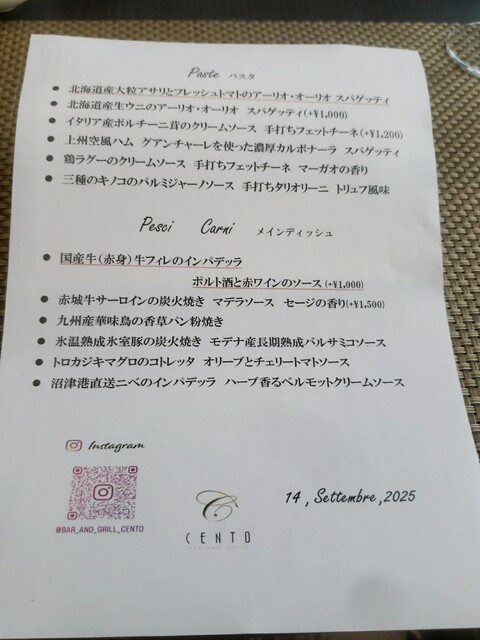 Paste パスタ
● 北海道産大粒アサリとフレッシュトマトのアーリオ・オーリオ スパゲッティ
● 北海道産生ウニのアーリオ・オーリオ スパゲッティ(+¥1,000)
● イタリア産ポルチーニ茸のクリームソース 手打ちフェットチーネ(+¥1,200)
● 上州空風ハム グアンチャーレを使った濃厚カルボナーラ スパゲッティ
● 鶏ラグーのクリームソース 手打ちフェットチーネ マーガオの香り
● 三種のキノコのパルミジャーノソース 手打ちタリオリーニ トリュフ風味
Pesci Carni メインディッシュ
● 国産牛(赤身)牛フィレのインパデッラ
ポルト酒と赤ワインのソース(+¥1,000)
● 赤城牛サーロインの炭火焼き マデラソース セージの香り(+¥1,500)
● 九州産華味鳥の香草パン粉焼き
● 氷温熟成氷室豚の炭火焼き モデナ産長期熟成バルサミコソース
● トロカジキマグロのコトレッタ オリーブとチェリートマトソース
● 沼津港直送ニベのインパデッラ ハーブ香るベルモットクリームソース
Instagram
@BAR_AND_GRILL_CENTO
CENTO
BAR AND GRILL
14 , Settembre ,2025